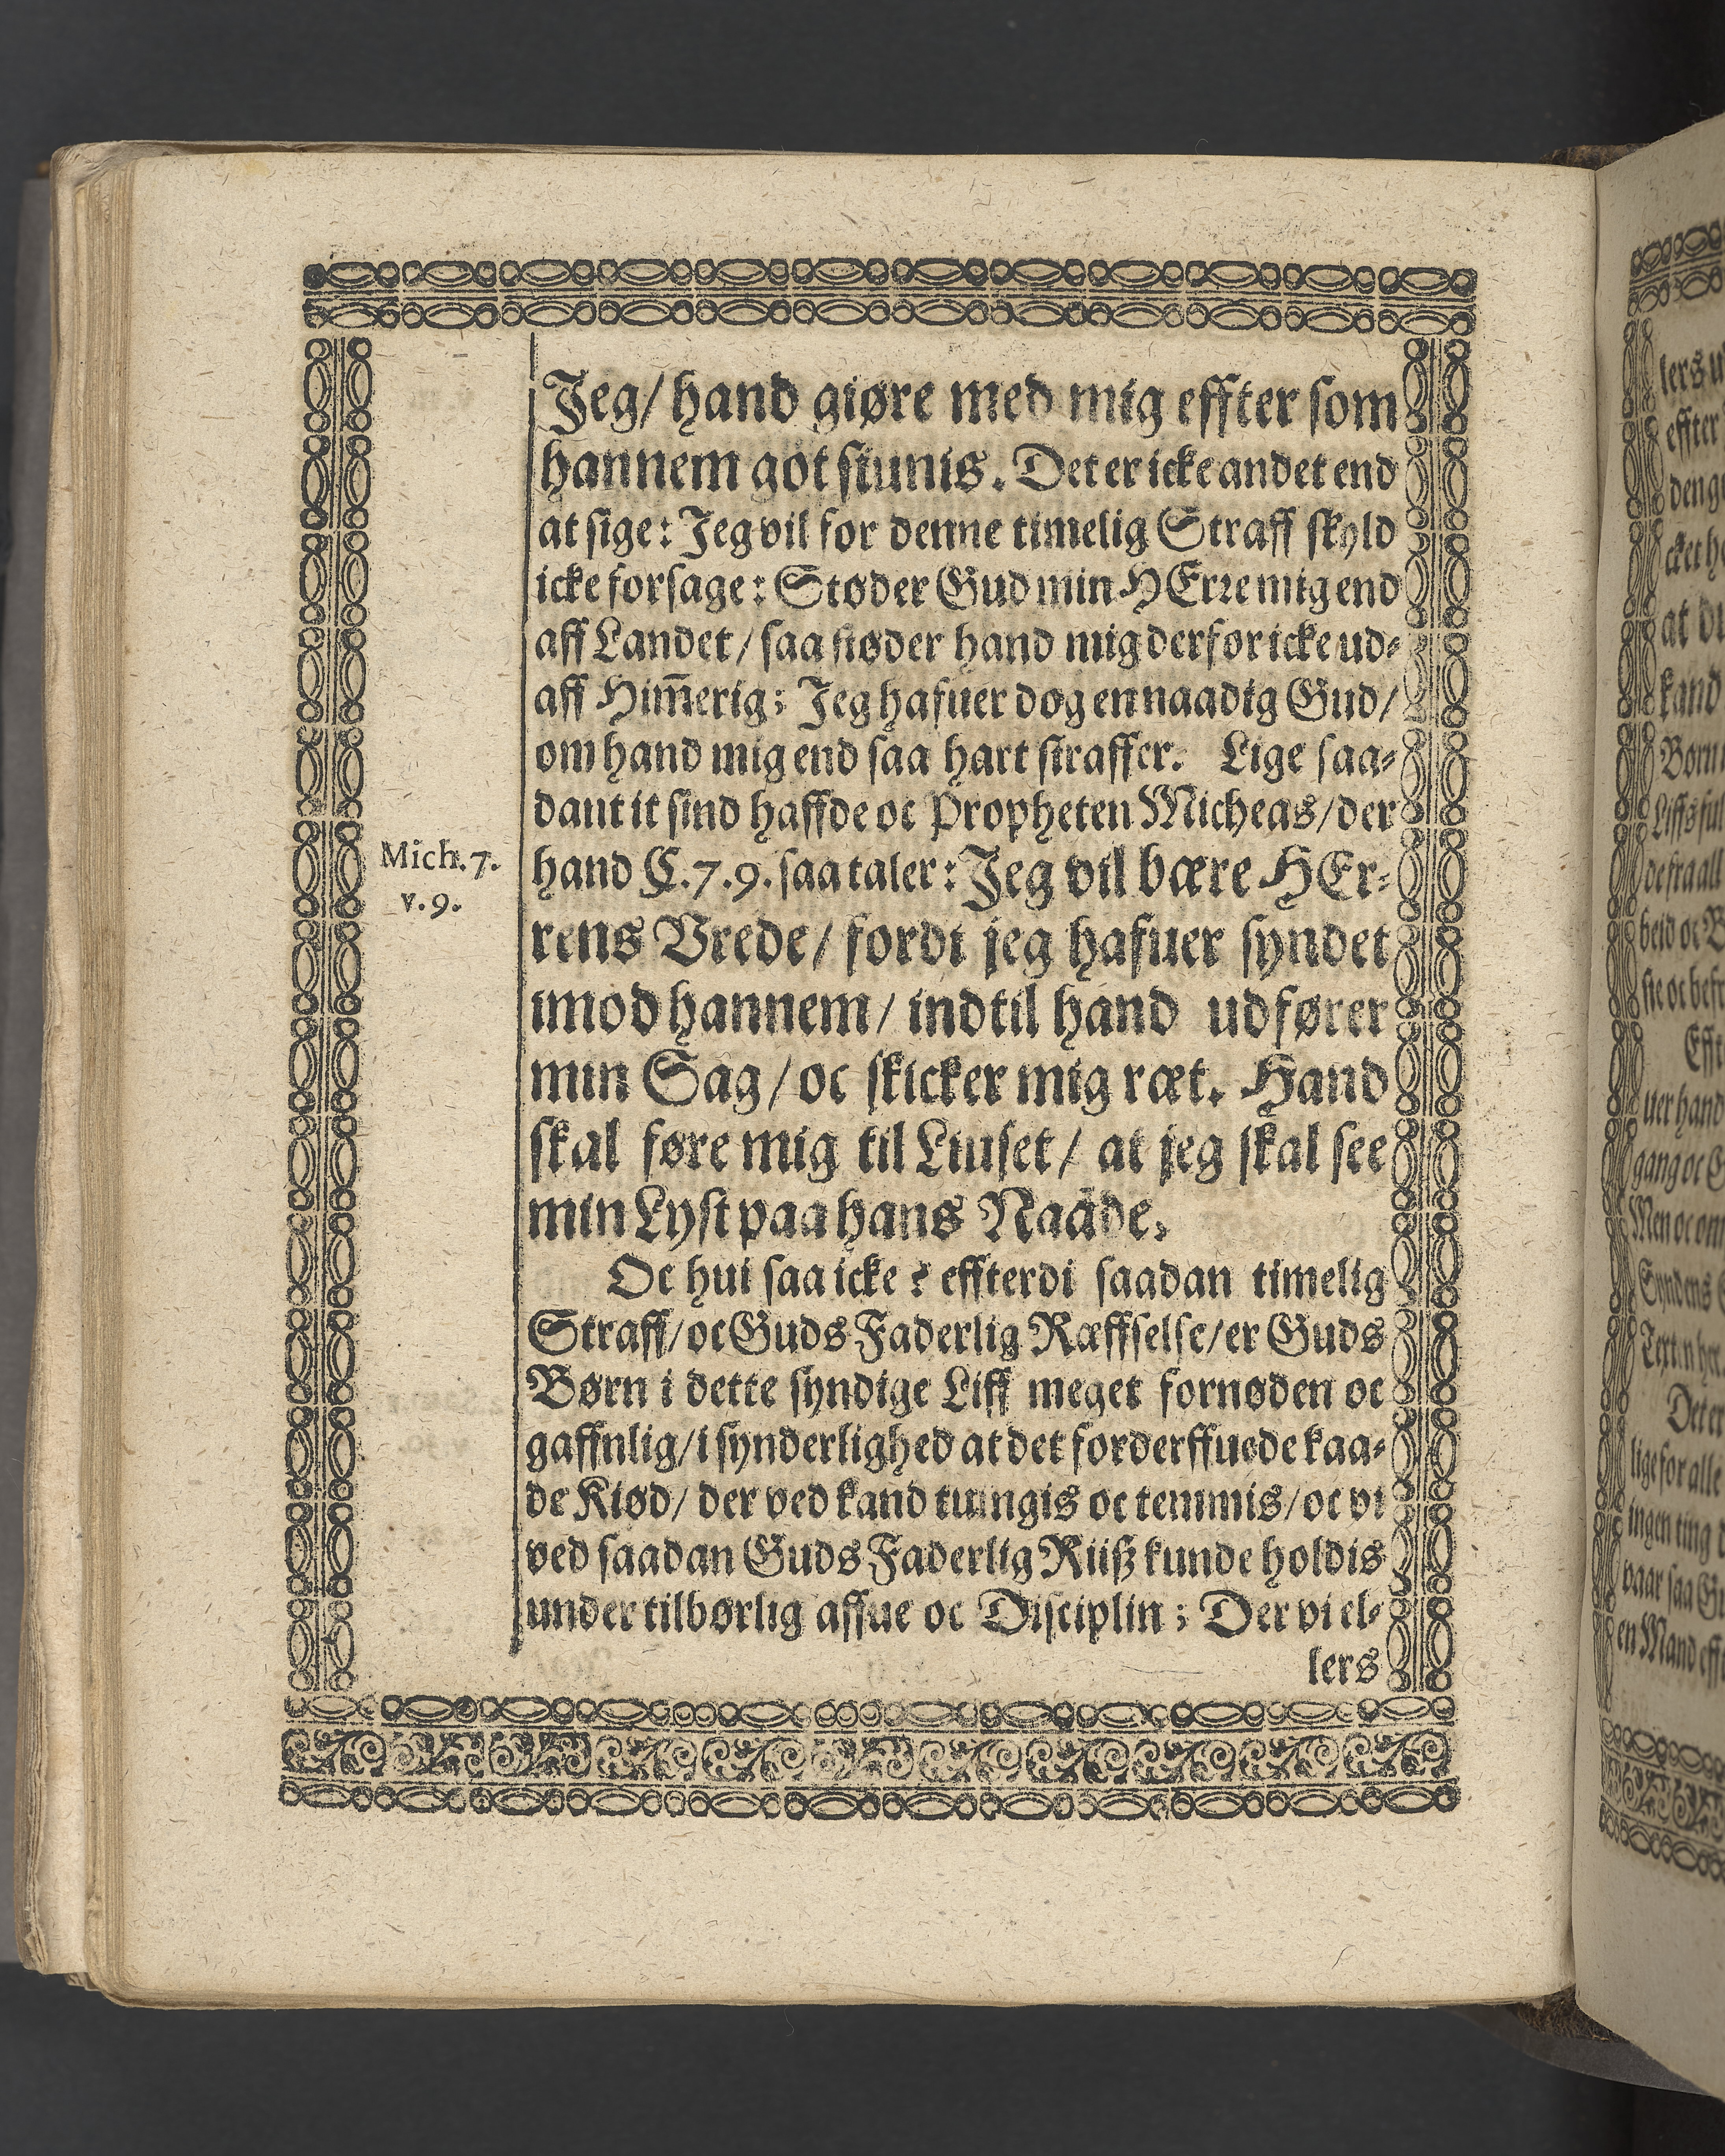 Jeg/ hand giøre med mig effter som
hannem got siunis. Det er icke andet end
at sige: Jeg vil for denne timelig Straff skyld
icke forsage: Støder Gud min HErre mig end
aff Landet/ saa støder hand mig derfor icke ud-
aff Him̅erig; Jeg hafuer dog en naadig Gud/
om hand mig end saa hart straffer. Lige saa-
dant it sind haffde oc Propheten Micheas/ der
Mich. 7.
v. 9.
hand C. 7. 9. saa taler: Jeg vil bære HEr-
rens Vrede/ fordi jeg hafuer syndet
imod hannem/ indtil hand udfører
min Sag/ oc skicker mig ræt. Hand
skal føre mig til Liuset/ at jeg skal see
min Lyst paa hans Naade.
Oc hui saa icke? effterdi saadan timelig
Straff/ oc Guds Faderlig Ræffselse/ er Guds
Børn i dette syndige Liff meget fornøden oc
gaffnlig/ i synderlighed at det forderffuede kaa-
de Kiød/ der ved kand tuingis oc temmis/ oc vi
ved saadan Guds Faderlig Riiß kunde holdis
under tilbørlig affue oc Disciplin; Der vi el-
lers
lers
effter
at
kand
Børn
de fra all
beid oc
uer hand
gang oc
Men oc om
Syndens
Det er
lige for alle
ingen ting
vaar saa
en Mand